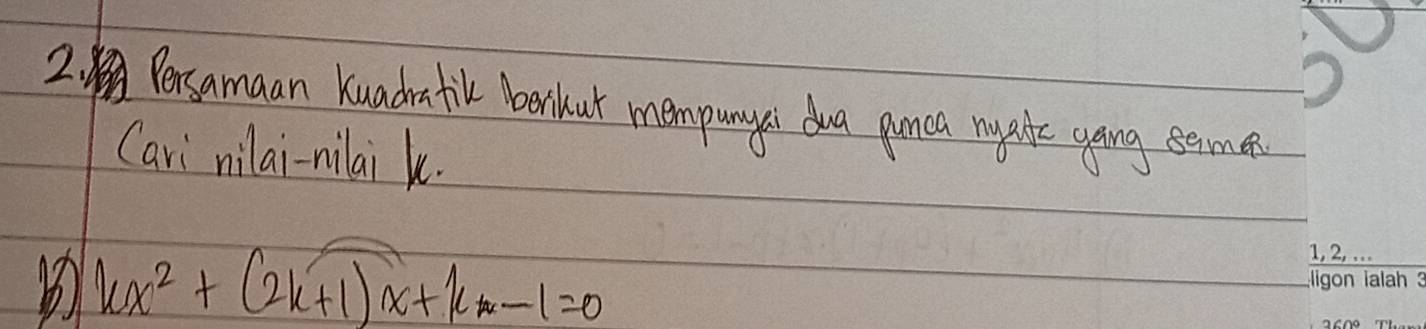 2. Persamaan kuadratik berikut mempunyai dua punca nyata yang sama.
Cari nilai-nilai k.
b) kx² + (2k+1)x + k - 1 = 0
1, 2, ...
ligon ialah 3
360°